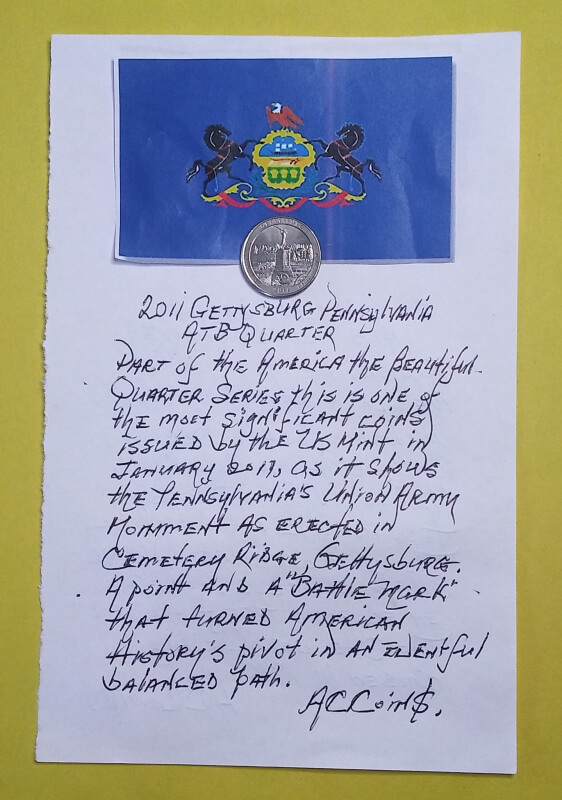 2011 GETTYSBURG PENNSYLVANIA
ATB QUARTER
PART OF the AMERICA the BEAUTIFUL
QUARTER SERIES this is ONE OF
the MOST SIGNIFICANT COINS
ISSUED by the US MINT IN
JANUARY 2011, AS it SHOWS
the PENNSYLVANIA'S UNION ARMY
MONUMENT AS ERECTED IN
CEMETERY RIDGE, GETTYSBURG.
A POINT AND A "BATTLE MARK"
that TURNED AMERICAN
HISTORY'S PIVOT IN AN EVENTFUL
BALANCED PATH.
ACCoin$.